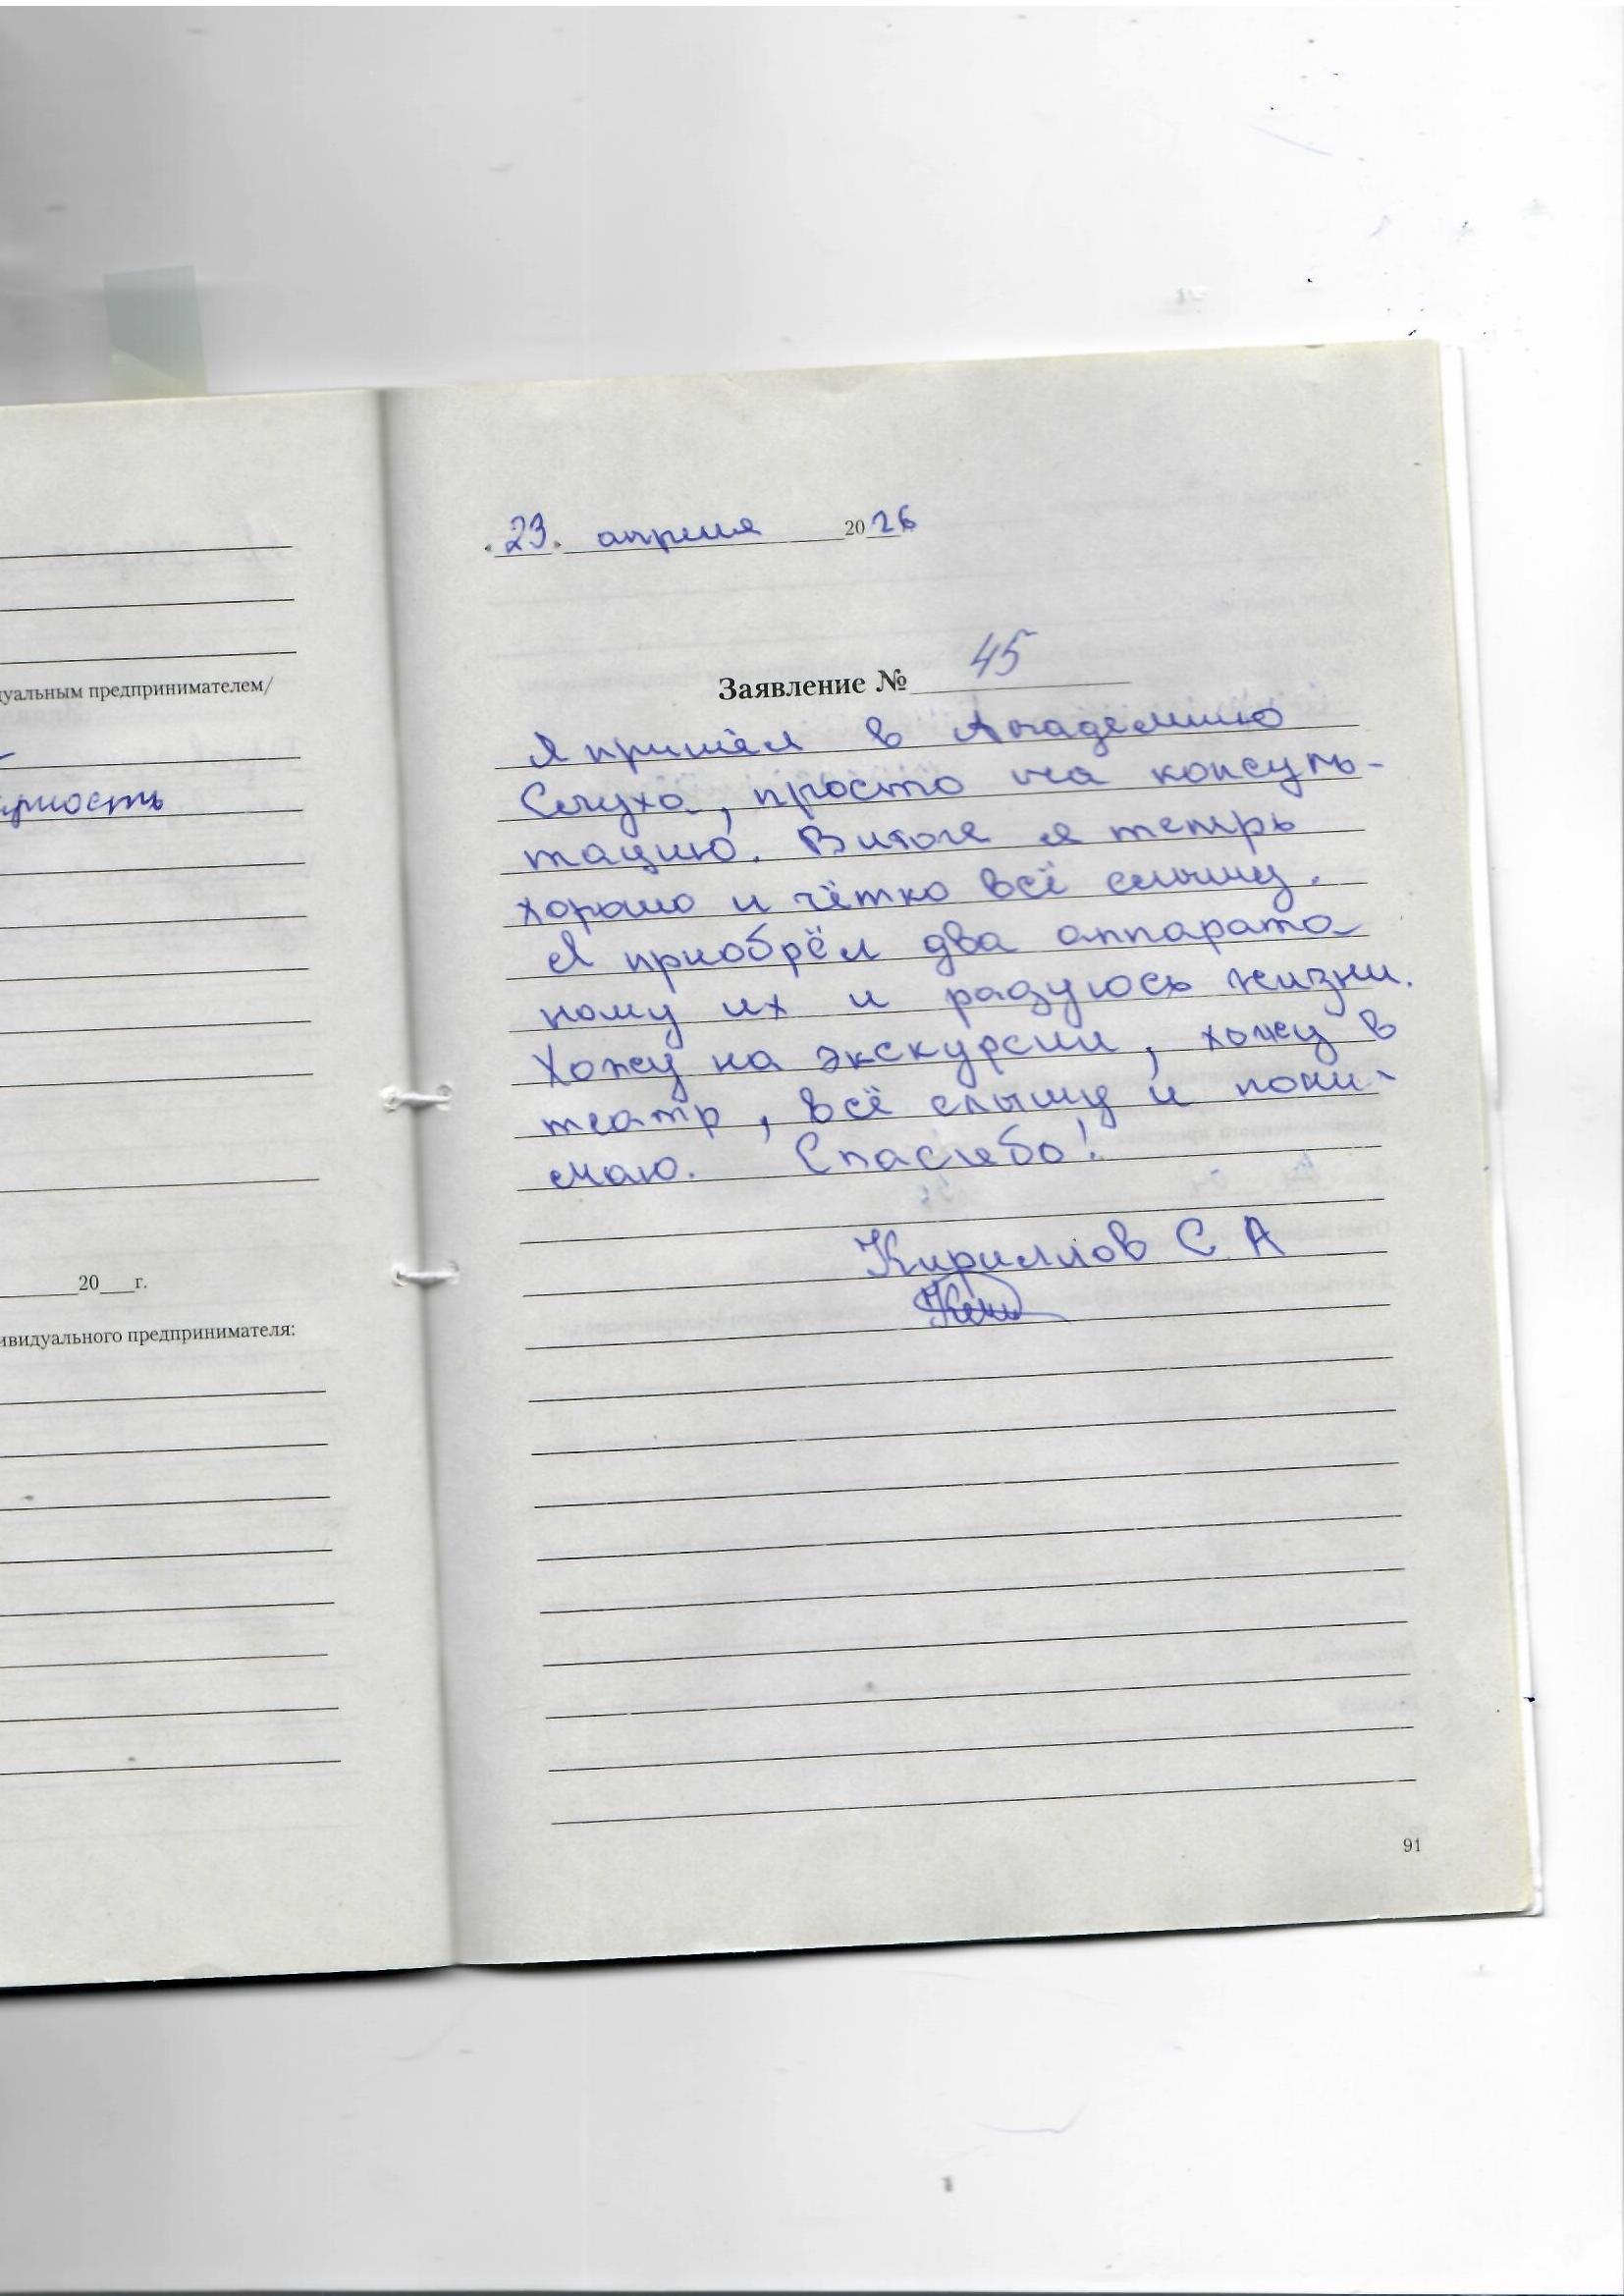 дуальным предпринимателем/
рность
20 г.
ивидуального предпринимателя:
23. апреля 2026
Заявление № 45
Я пришёл в Академию
Слуха, просто на консуль-
тацию. В итоге я теперь
хорошо и чётко всё слышу.
Я приобрёл два аппарата
ношу их и радуюсь жизни.
Хожу на экскурсии, хожу в
театр, всё слышу и пони-
маю. Спасибо!
Кириллов С А
91